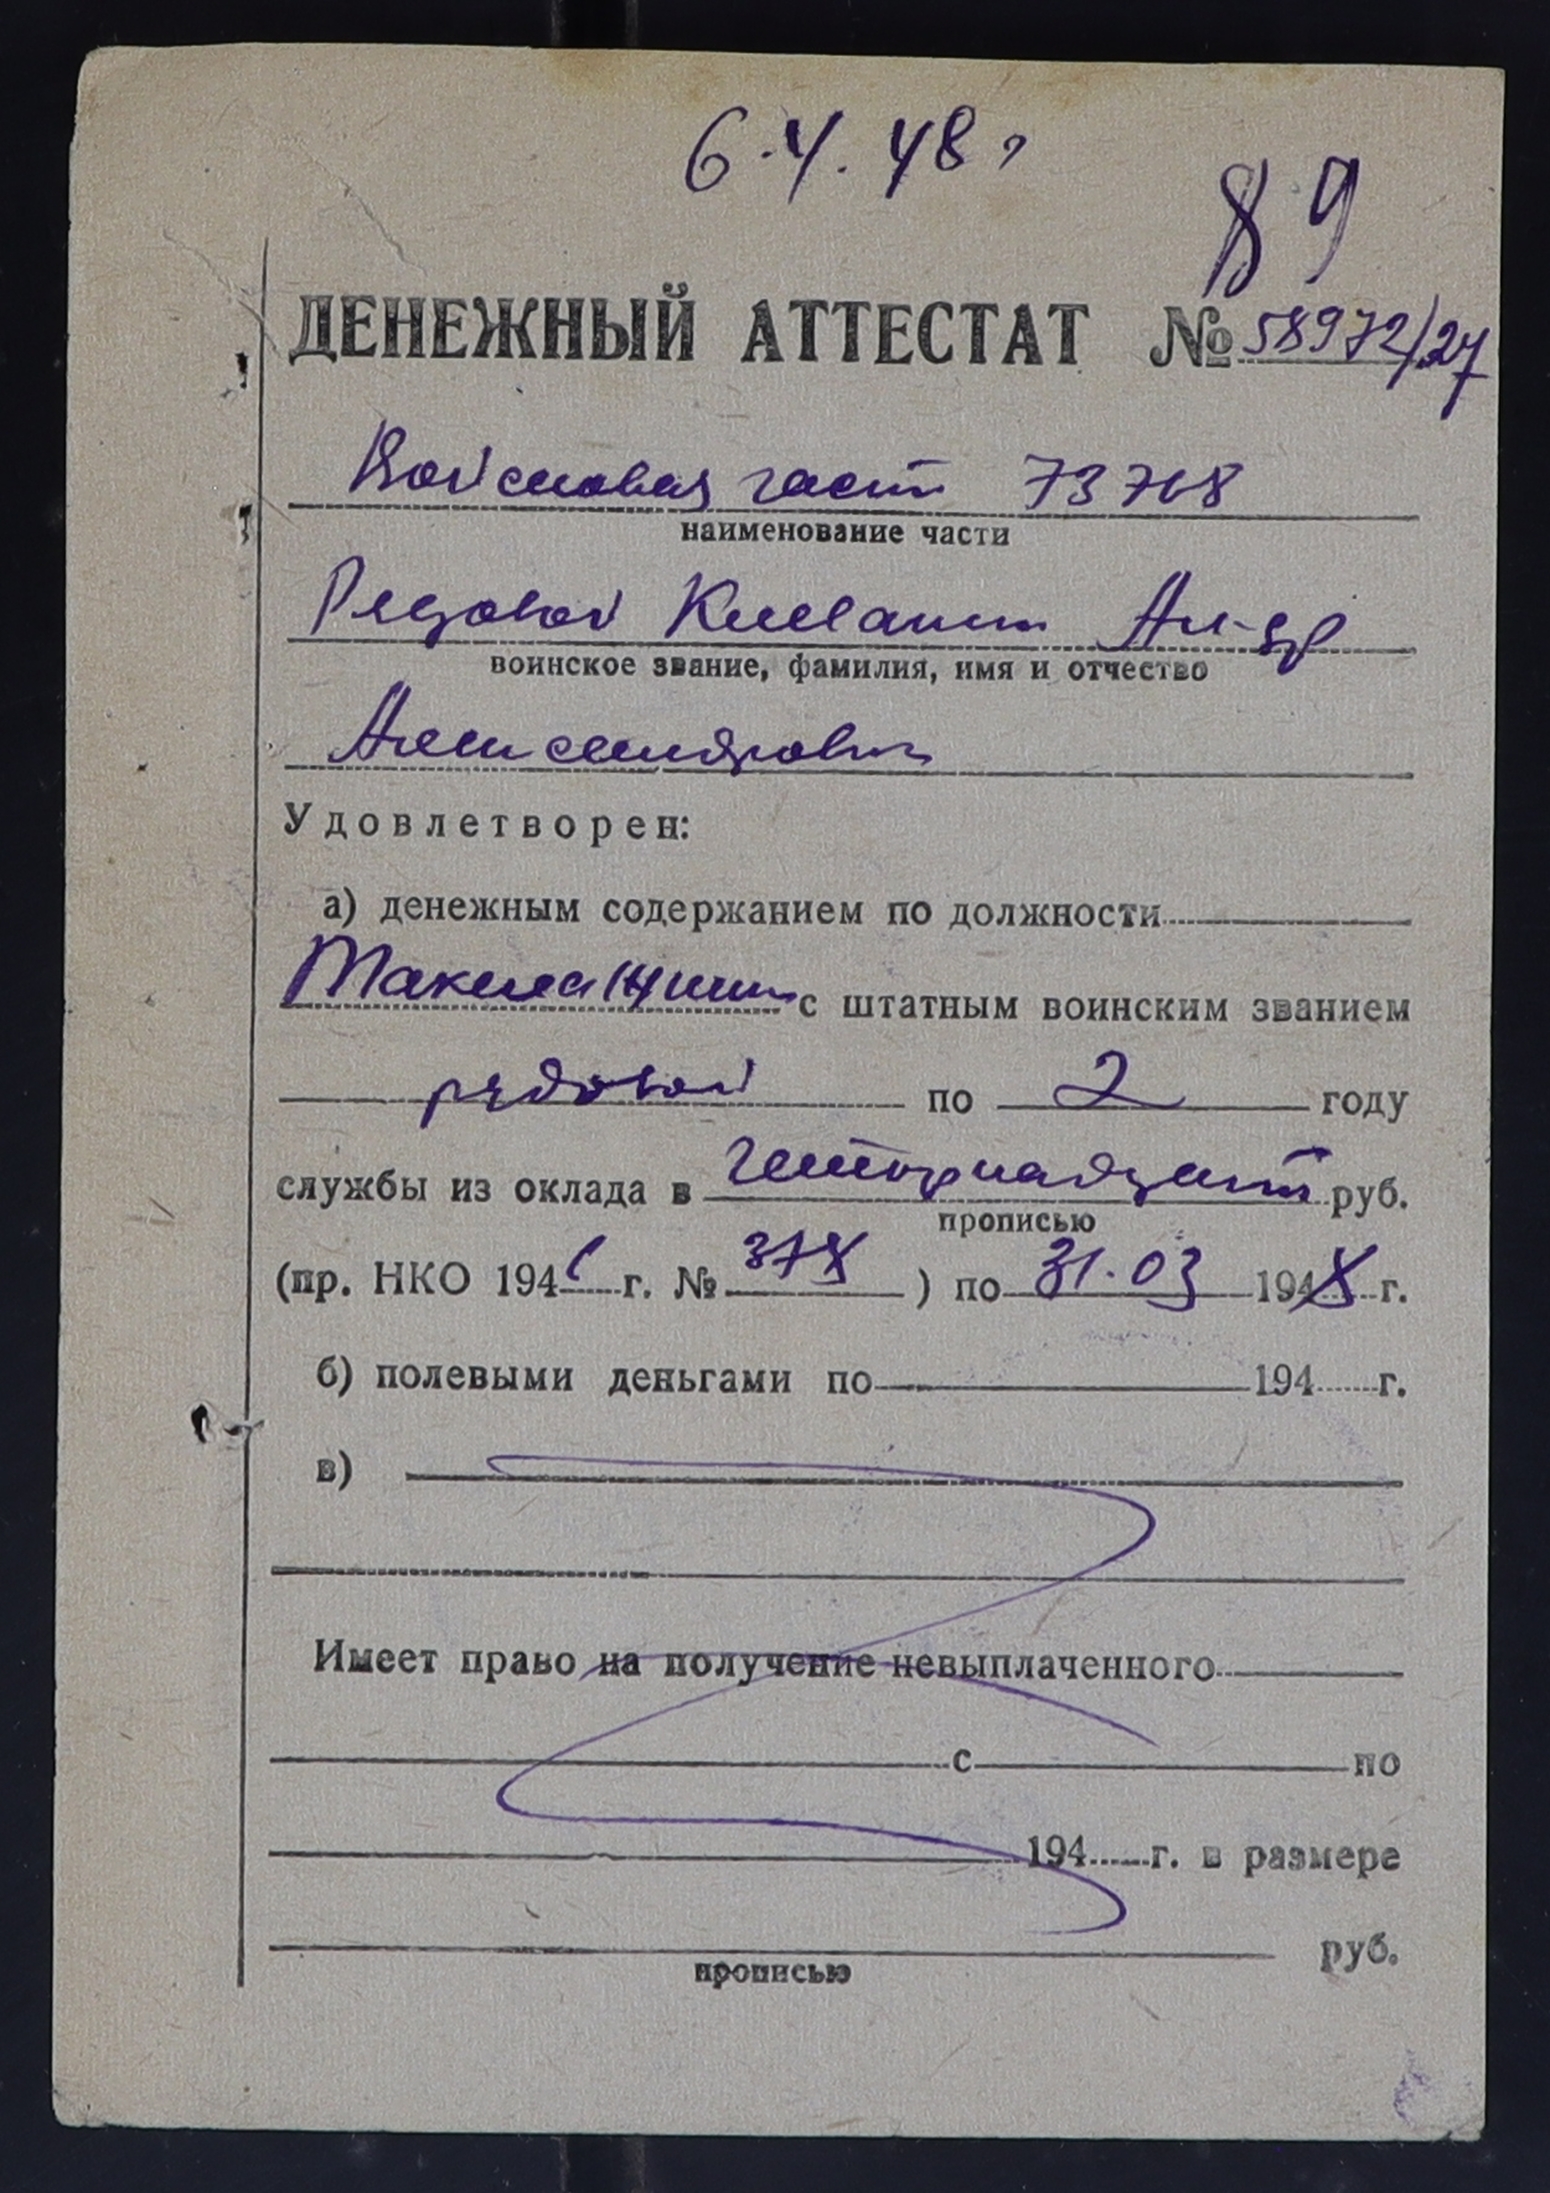 6.4.48 г
89
ДЕНЕЖНЫЙ АТТЕСТАТ № 58972/27
Войсковая част 73768
наименование части
Рядовой Ал-др
воинское звание, фамилия, имя и отчество
Александрович
Удовлетворен:
а) денежным содержанием по должности
с штатным воинским званием
рядовой по 2 году
службы из оклада в руб.
прописью
(пр. НКО 194 г. № 378 ) по 31.03 1948 г.
б) полевыми деньгами по 194 г.
в)
Имеет право на получение невыплаченного
с по
194 г. в размере
руб.
прописью